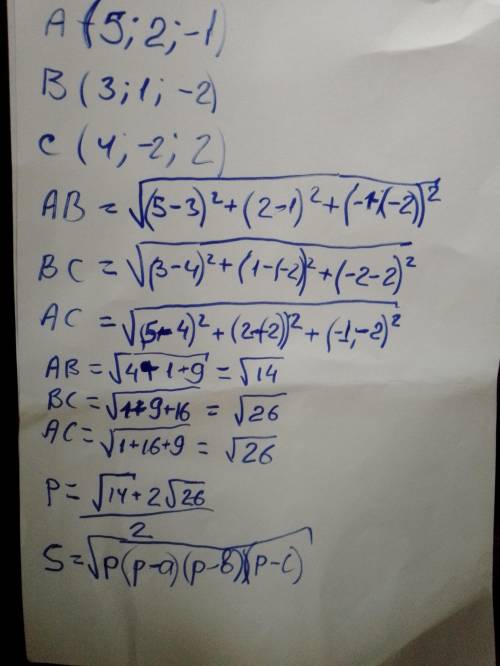 A (5; 2; -1)
B (3; 1; -2)
C (4; -2; 2)
AB = √((5-3)² + (2-1)² + (-1-(-2))²
BC = √((3-4)² + (1-(-2))² + (-2-2)²
AC = √((5-4)² + (2+2))² + (-1,-2)²
AB = √(4+1+9) = √14
BC = √(1+9+16) = √26
AC = √(1+16+9) = √26
P = (√14 + 2√26)/2
S = √(P(p-a)(p-b)(p-c))